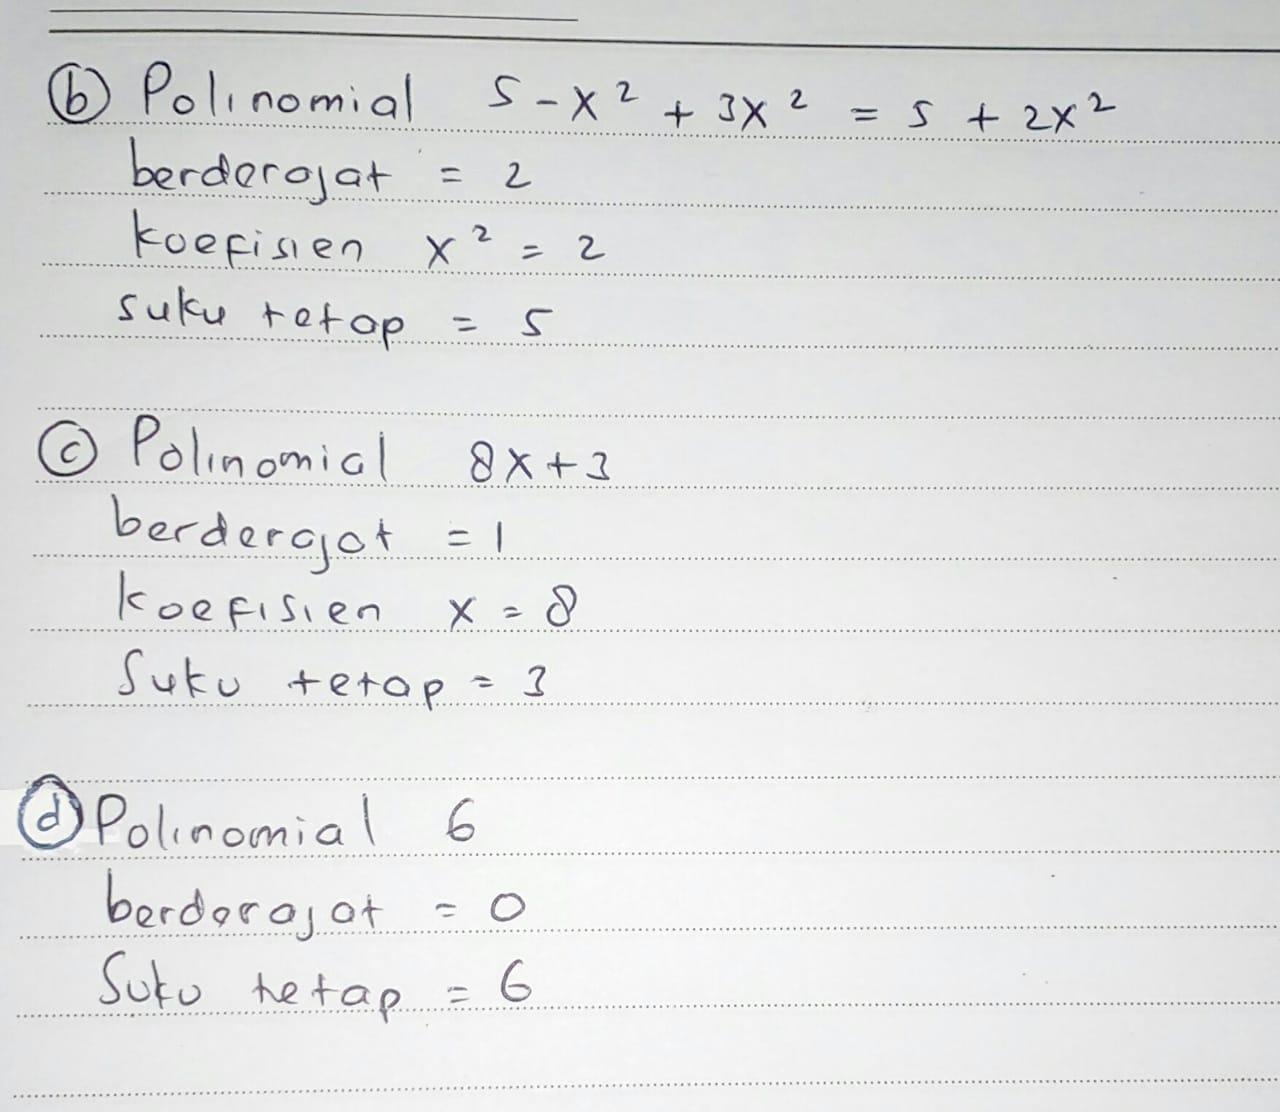 (b) Polinomial 5 - x² + 3x² = 5 + 2x²
berderajat = 2
koefisien x² = 2
suku tetap = 5
(c) Polinomial 8x + 3
berderajat = 1
koefisien x = 8
Suku tetap = 3
(d) Polinomial 6
berderajat = 0
Suku tetap = 6